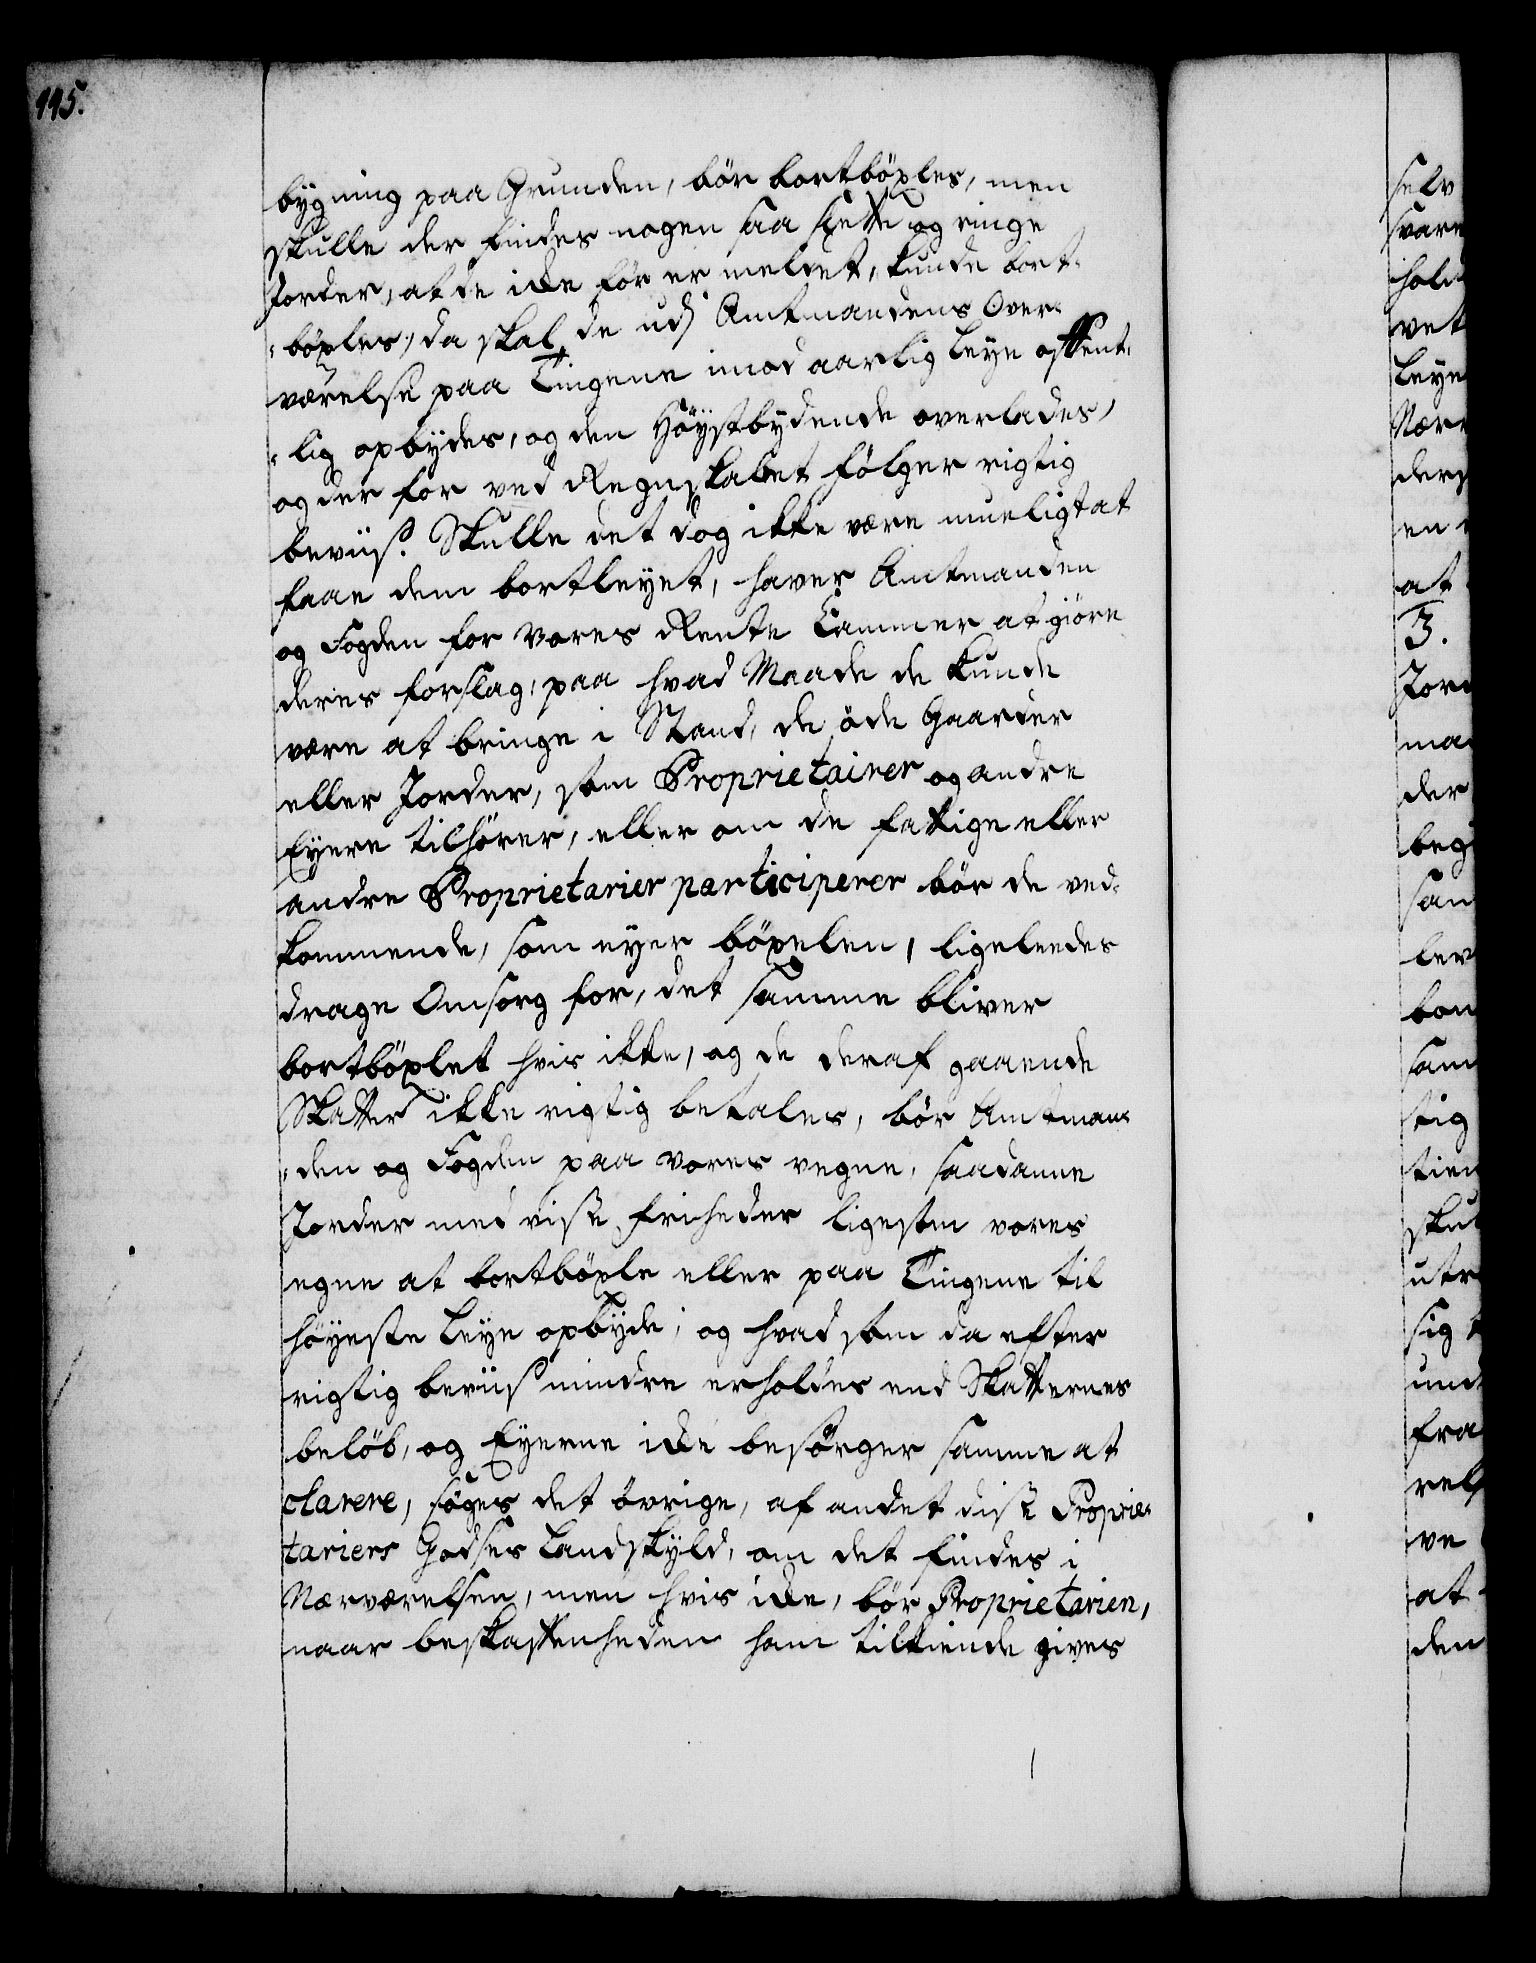 195.
bygning paa Grunden, bör bortböxles, men
skulle der findes nogen saa slette og ringe
Jorder, at de icke för er meldet, kunde bort-
böxles, da skal de udj Amtmandens Over-
værelse paa Tingene imod aarlig Leye offent-
lig opbydes, og den Höystbydende overlades,
og der for ved Regnskabet fölger rigtig
beviis. Skulle det dog ikke være mueligt at
faae dem bortleyet, haver Amtmanden
og Fogden for vores Rente Cammer at giöre
deres forslag, paa hvad Maade de kunde
være at bringe i Stand, de öde Gaarder
eller Jorder, som Proprietairer og andre
Eyere tilhörer, eller om de fattige eller
andre Proprietarier participerer bör de ved-
kommende, som eyer böxelen, ligeleedes
drage Omsorg for, det samme bliver
bortböxlet hvis ikke, og de deraf gaaende
Skatter ikke rigtig betales, bör Amtman-
den og Fogden paa vores vegne, saadanne
Jorder med visse friheder ligesom vores
egne at bortböxle eller paa Tingene til
höyeste Leye opbyde; og hvad som da efter
rigtig beviis mindre erholdes end Skatternes
belöb, og Eyerne icke besörger samme at
clarere, söges det övrige, af andet disse Proprie-
tariers Godses Landskyld, om det findes i
Nærværelsen, men hvis icke, bör Proprietarien,
naar beskaffenheden ham tilkiende gives
selv
svare
hold
vet
Leye
Nær
ders
en
at
3.
Jord
ma
der
beg
san
lev
bon
sam
tig
tien
skul
utr
sig
und
fra
rels
ve
at
den